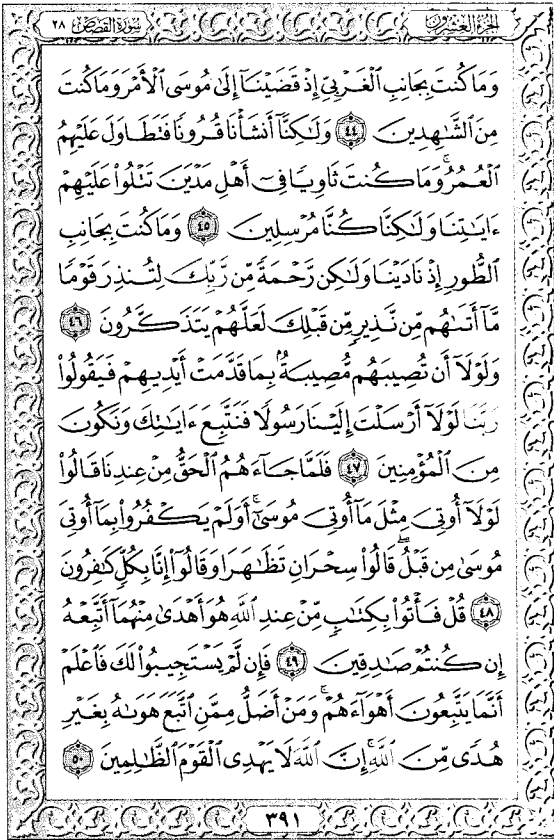 الجزء العشرون سورة القصص ٢٨
وَمَا كُنتَ بِجَانِبِ ٱلْغَرْبِيِّ إِذْ قَضَيْنَآ إِلَىٰ مُوسَى ٱلْأَمْرَ وَمَا كُنتَ
مِنَ ٱلشَّـٰهِدِينَ ٤٤ وَلَـٰكِنَّآ أَنشَأْنَا قُرُونًا فَتَطَاوَلَ عَلَيْهِمُ
ٱلْعُمُرُ ۚ وَمَا كُنتَ ثَاوِيًا فِىٓ أَهْلِ مَدْيَنَ تَتْلُوا۟ عَلَيْهِمْ
ءَايَـٰتِنَا وَلَـٰكِنَّا كُنَّا مُرْسِلِينَ ٤٥ وَمَا كُنتَ بِجَانِبِ
ٱلطُّورِ إِذْ نَادَيْنَا وَلَـٰكِن رَّحْمَةً مِّن رَّبِّكَ لِتُنذِرَ قَوْمًا
مَّآ أَتَىٰهُم مِّن نَّذِيرٍ مِّن قَبْلِكَ لَعَلَّهُمْ يَتَذَكَّرُونَ ٤٦
وَلَوْلَآ أَن تُصِيبَهُم مُّصِيبَةٌۢ بِمَا قَدَّمَتْ أَيْدِيهِمْ فَيَقُولُوا۟
رَبَّنَا لَوْلَآ أَرْسَلْتَ إِلَيْنَا رَسُولًا فَنَتَّبِعَ ءَايَـٰتِكَ وَنَكُونَ
مِنَ ٱلْمُؤْمِنِينَ ٤٧ فَلَمَّا جَآءَهُمُ ٱلْحَقُّ مِنْ عِندِنَا قَالُوا۟
لَوْلَآ أُوتِىَ مِثْلَ مَآ أُوتِىَ مُوسَىٰٓ ۚ أَوَلَمْ يَكْفُرُوا۟ بِمَآ أُوتِىَ
مُوسَىٰ مِن قَبْلُ ۖ قَالُوا۟ سِحْرَانِ تَظَـٰهَرَا وَقَالُوٓا۟ إِنَّا بِكُلٍّ كَـٰفِرُونَ
٤٨ قُلْ فَأْتُوا۟ بِكِتَـٰبٍ مِّنْ عِندِ ٱللَّهِ هُوَ أَهْدَىٰ مِنْهُمَآ أَتَّبِعْهُ
إِن كُنتُمْ صَـٰدِقِينَ ٤٩ فَإِن لَّمْ يَسْتَجِيبُوا۟ لَكَ فَٱعْلَمْ
أَنَّمَا يَتَّبِعُونَ أَهْوَآءَهُمْ ۚ وَمَنْ أَضَلُّ مِمَّنِ ٱتَّبَعَ هَوَىٰهُ بِغَيْرِ
هُدًى مِّنَ ٱللَّهِ ۚ إِنَّ ٱللَّهَ لَا يَهْدِى ٱلْقَوْمَ ٱلظَّـٰلِمِينَ ٥٠
٣٩١